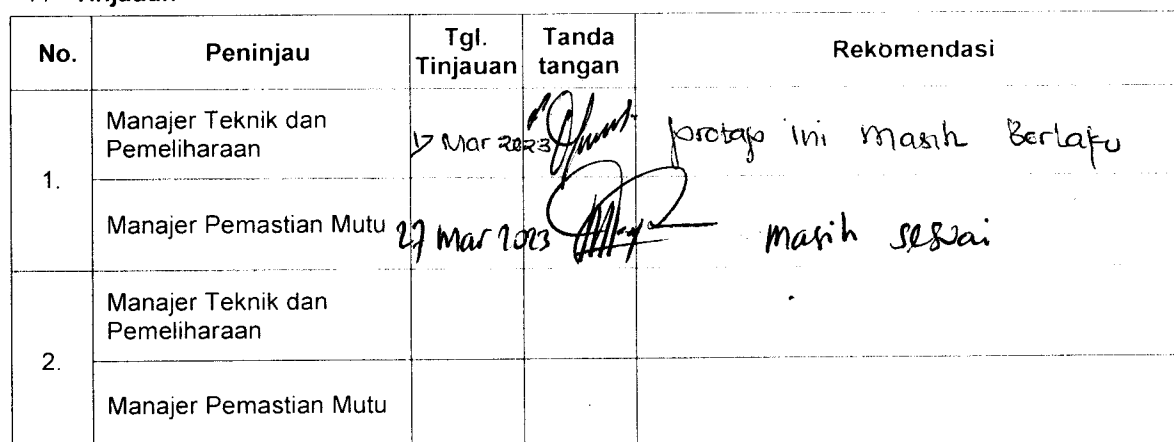 Tinjauan
No. Peninjau Tgl. Tinjauan Tanda tangan Rekomendasi
1. Manajer Teknik dan Pemeliharaan Mar 2023 protap ini masih Berlaku
Manajer Pemastian Mutu 27 Mar 2023 masih sesuai
2. Manajer Teknik dan Pemeliharaan
Manajer Pemastian Mutu